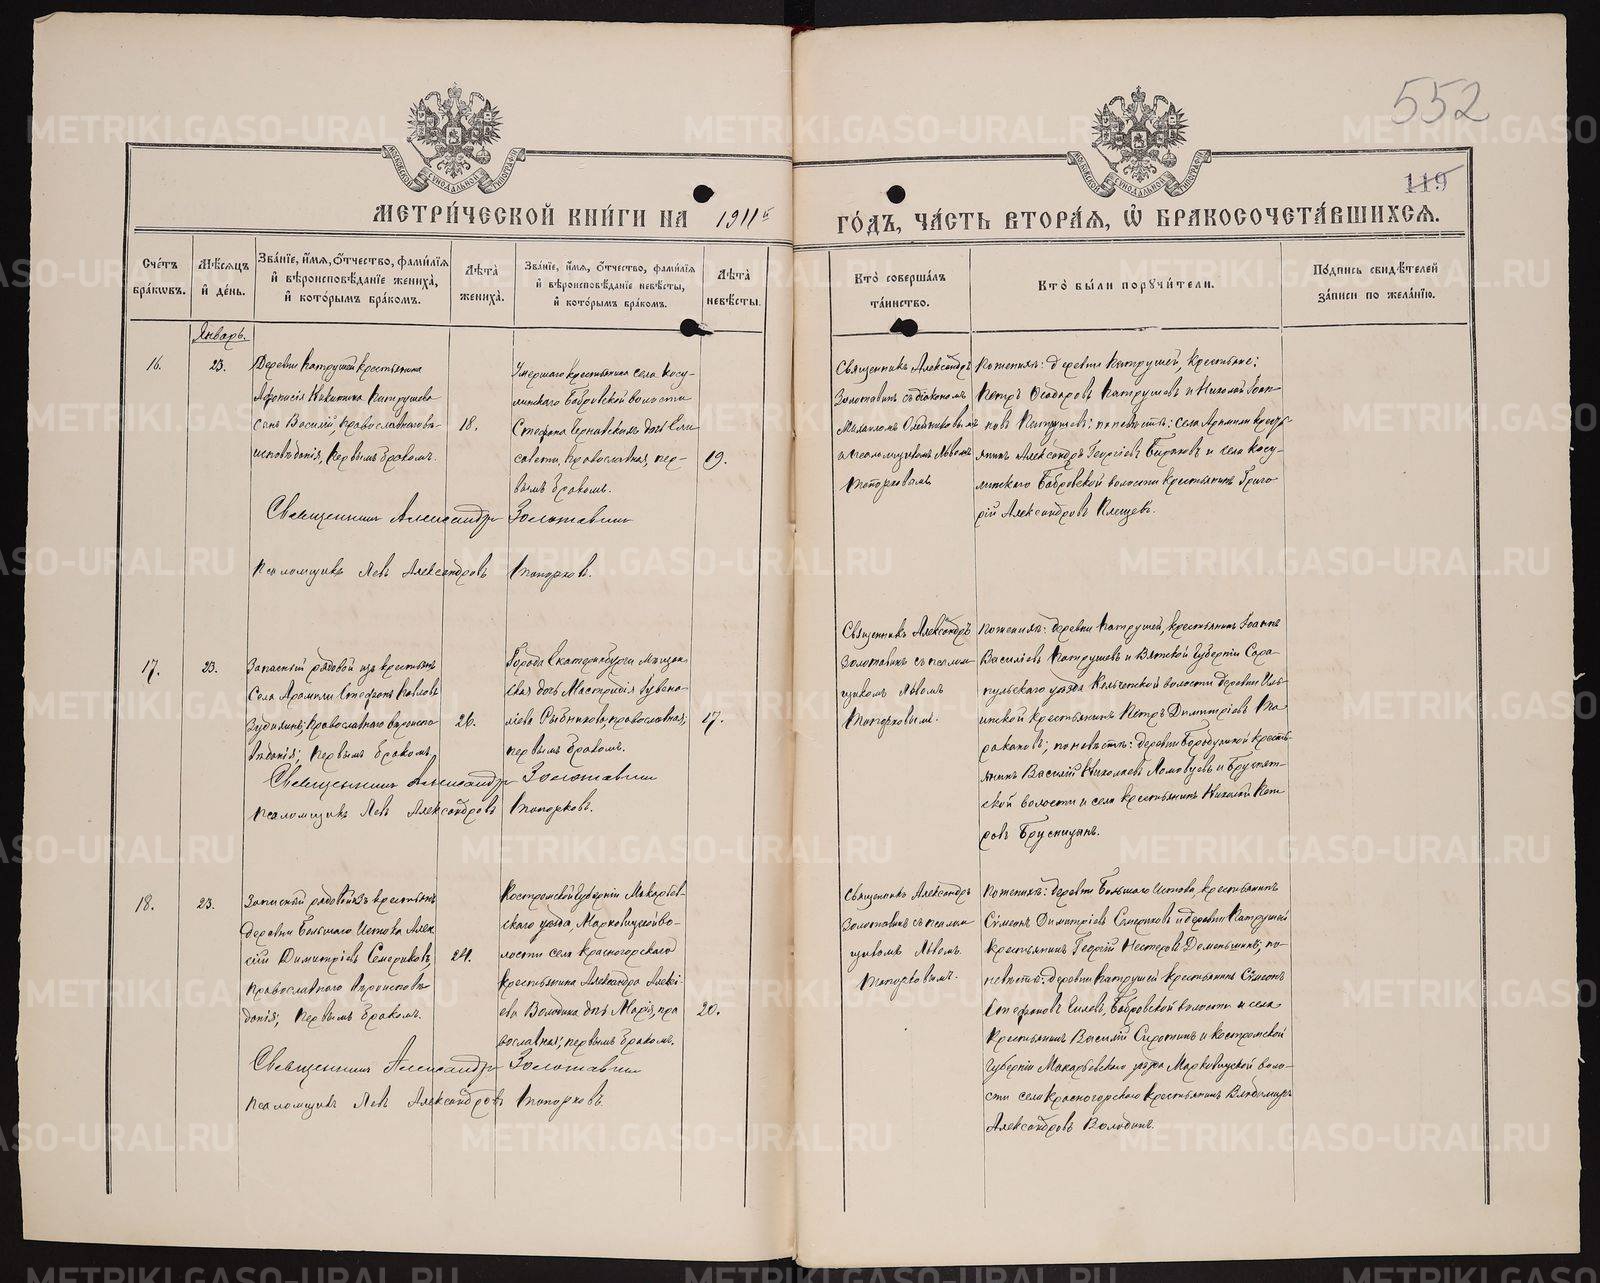 552
119
МЕТРИЧЕСКОЙ КНИГИ НА 1911й ГОДЪ, ЧАСТЬ ВТОРАЯ, Ѡ БРАКОСОЧЕТАВШИХСЯ.
Счетъ браковъ.
Мѣсяцъ и день.
Званіе, имя, отчество, фамилія и вѣроисповѣданіе жениха, и которымъ бракомъ.
Лѣта жениха.
Званіе, имя, отчество, фамилія и вѣроисповѣданіе невѣсты, и которымъ бракомъ.
Лѣта невѣсты.
Кто совершалъ таинство.
Кто были поручители.
Подпись свидѣтелей записи по желанію.
Январь.
16.
23.
Деревни Патрушей крестьянина
Афонасія Никитина Патрушева
сынъ Василій, православнаго вѣ-
исповѣданія, первымъ бракомъ.
18.
Умершаго крестьянина села Косу-
линскаго Бобровской волости
Стефана Чернавскихъ дочь Ели
савета, православная, пер-
вымъ бракомъ.
19.
Священникъ Александръ
Золотавинъ съ діакономъ
Михаиломъ Олейниковымъ
и псаломщикомъ Львомъ
Топорковымъ
По женихѣ: деревни Патрушей, крестьяне:
Петръ Ѳеодоровъ Патрушевъ и Николай Іоан-
новъ Патрушевъ; по невѣстѣ: села Арамили крест-
янинъ Александръ Георгіевъ Бирюковъ и села Косу-
линскаго Бобровской волости крестьянинъ Григо-
рій Александровъ Клещевъ.
Священникъ Александръ Золотавинъ
Псаломщикъ Левъ Александровъ Топорковъ.
17.
23.
Запасный рядовой изъ крестьянъ
Села Арамили Стефанъ Павловъ
Зудилинъ; православнаго вѣроиспо-
вѣданія; первымъ бракомъ.
26.
Города Екатеринбурга мѣщан-
ская дочь Мастридія Іувена-
ліева Рыбникова, православная;
первымъ бракомъ.
17.
Священникъ Александръ
Золотавинъ съ псалом-
щикомъ Львомъ
Топорковымъ.
По женихѣ: деревни Патрушей, крестьянинъ Іоаннъ
Василіевъ Патрушевъ и Вятской Губерніи Сара-
пульскаго уѣзда Кельчинской волости деревни Иль-
инской крестьянинъ Петръ Димитріевъ Та-
ракановъ; по невѣстѣ: деревни Бородулиной кресть-
янинъ Василій Николаевъ Ломовцевъ и Бруснят-
ской волости и села крестьянинъ Николай Пет-
ровъ Брусницынъ.
Священникъ Александръ Золотавинъ
Псаломщикъ Левъ Александровъ Топорковъ.
18.
23.
Запасный рядовой изъ крестьянъ
деревни Большаго Истока Алек
сій Димитріевъ Семериковъ,
православнаго вѣроисповѣ
данія; первымъ бракомъ.
24.
Костромской Губерніи Макарьев-
скаго уѣзда, Марковицкой во-
лости села Красногорскаго
крестьянина Александра Алексі-
ева Володина дочь Марія, пра
вославная; первымъ бракомъ.
20.
Священникъ Александръ
Золотавинъ съ псалом
щикомъ Львомъ
Топорковымъ.
По женихѣ: деревни Большаго Истока, крестьянинъ
Сѵмеонъ Димитріевъ Семериковъ и деревни Патрушей
крестьянинъ Георгій Нестеровъ Деменьшинъ; по
невѣстѣ: деревни Патрушей крестьянинъ Сѵмеонъ
Стефановъ Гилевъ, Бобровской волости и села
крестьянинъ Василій Сиротинъ и Костромской
Губерніи Макарьевскаго уѣзда Марковицкой воло-
сти села Красногорскаго крестьянинъ Владимиръ
Александровъ Володинъ.
Священникъ Александръ Золотавинъ
Псаломщикъ Левъ Александровъ Топорковъ
METRIKI.GASO-URAL.RU